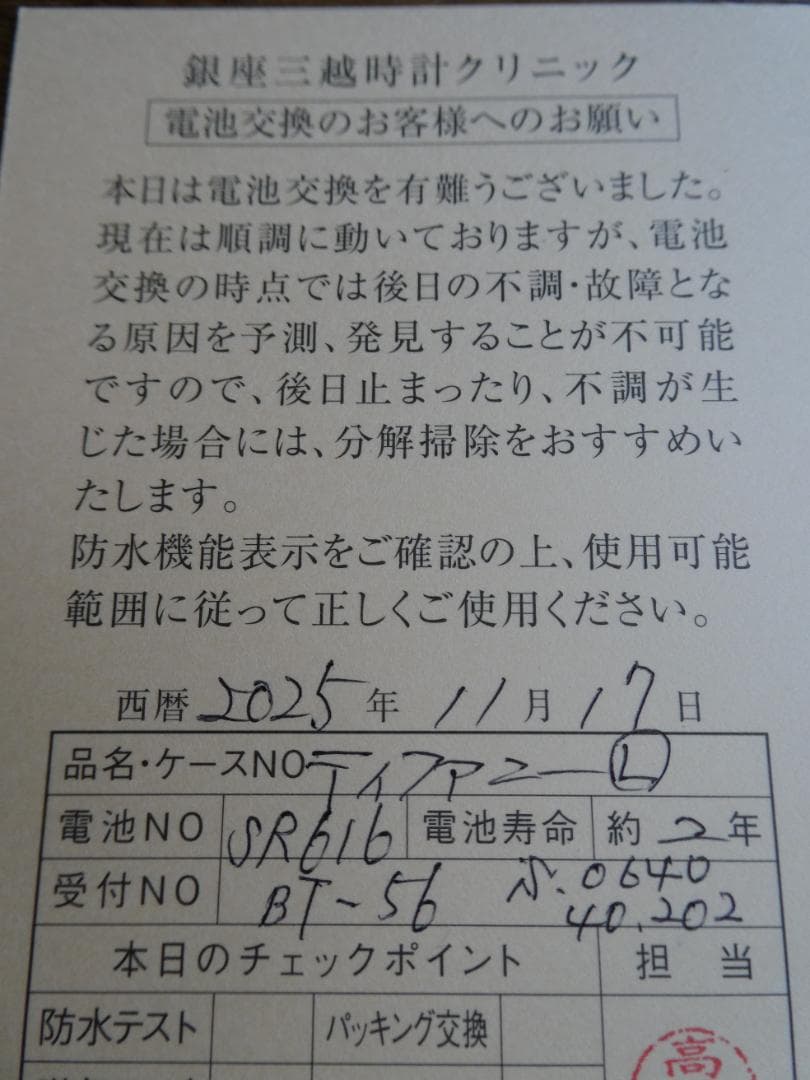 銀座三越時計クリニック
電池交換のお客様へのお願い
本日は電池交換を有難うございました。
現在は順調に動いておりますが、電池
交換の時点では後日の不調・故障とな
る原因を予測、発見することが不可能
ですので、後日止まったり、不調が生
じた場合には、分解掃除をおすすめい
たします。
防水機能表示をご確認の上、使用可能
範囲に従って正しくご使用ください。
西暦 2025 年 11 月 17 日
品名・ケースNO ティファニー Ⓛ
電池NO SR616 電池寿命 約 2 年
受付NO BT-56 .0640
40.202
本日のチェックポイント 担当
防水テスト パッキング交換
高